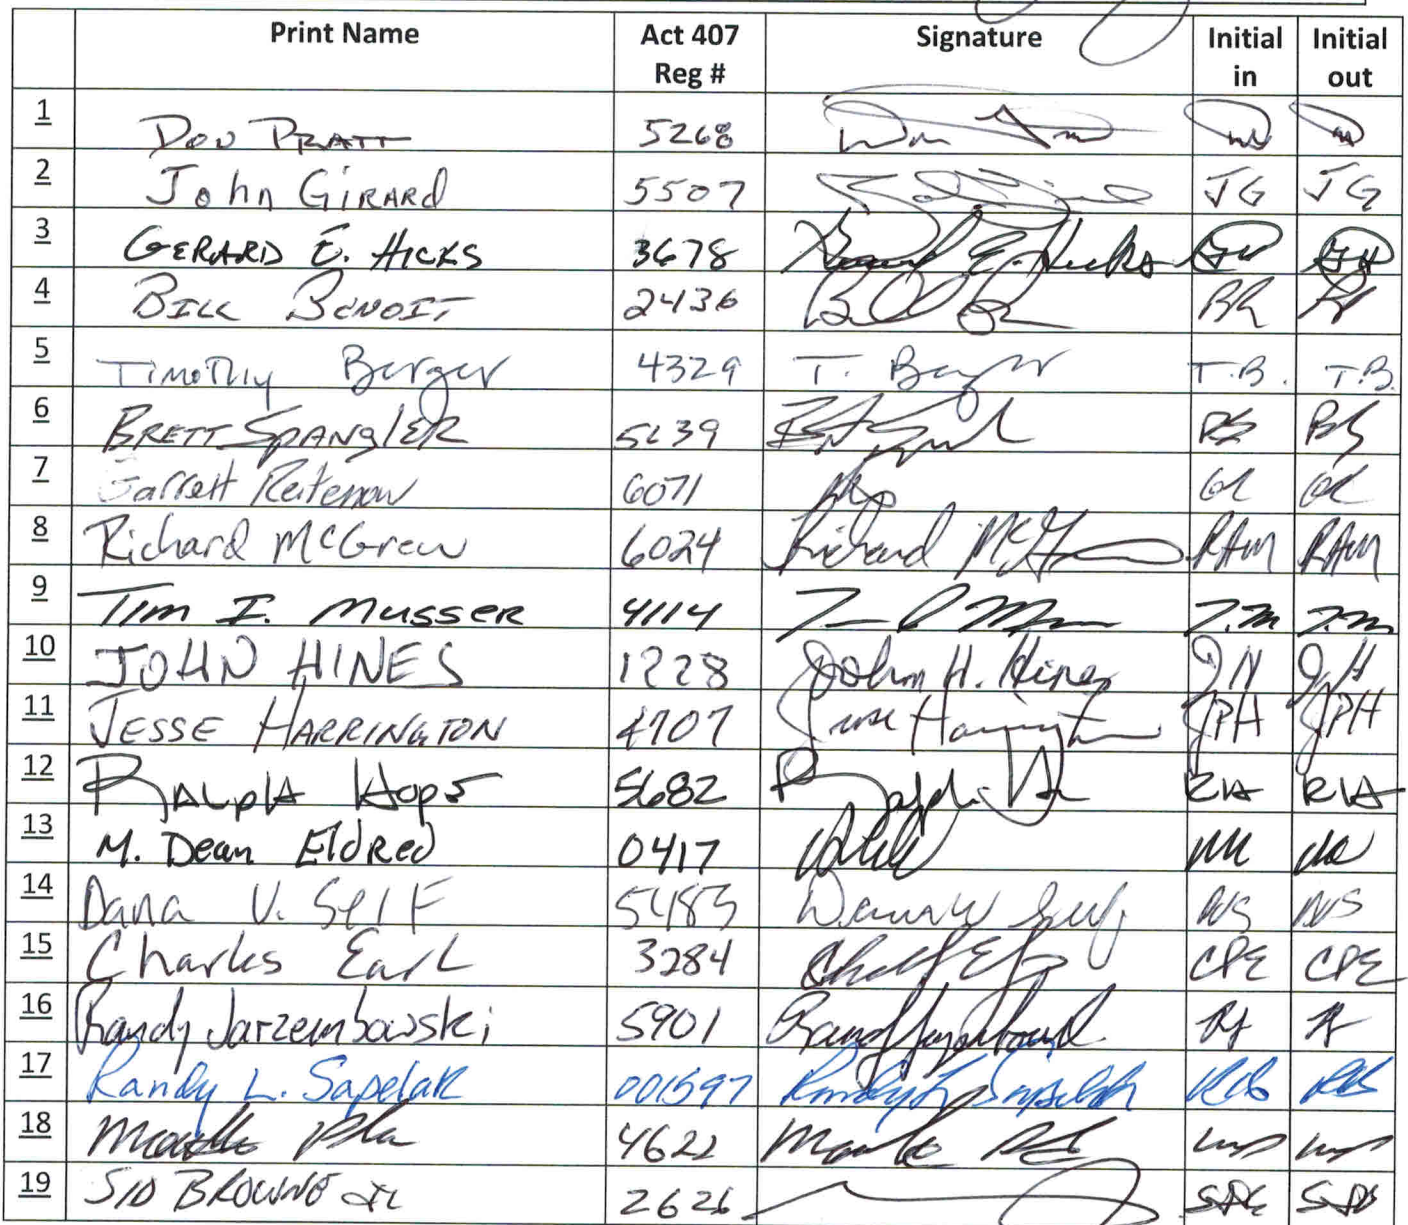 Print Name Act 407 Reg # Signature Initial in Initial out
1 Don Pratt 5268
2 John Girard 5507 JG JG
3 Gerard E. Hicks 3678 Gerard E. Hicks GH GH
4 Bill Benoit 2436
5 Timothy Berger 4329 T. Berger T.B. T.B.
6 Brett Spangler 5239 BS BS
7 Garrett 6071 GR GR
8 Richard McGrew 6024 Richard McG RAM RAM
9 Tim I. Musser 4114 T.M T.M
10 JOHN HINES 1228 John H. Hines JH JH
11 JESSE HARRINGTON 4707 Jesse Harrington JPH JPH
12 Ralph Hope 5682 Ralph RH RH
13 M. Dean Eldred 0417
14 Dana V. Self 5483 DVS DVS
15 Charles Earl 3284 CPE CPE
16 Randy Jarzembowski 5901 RJ RJ
17 Randy L. Sapelak 001597 Randy L Sapelak RLS RLS
18 4622
19 SID BROWNE JR 2626